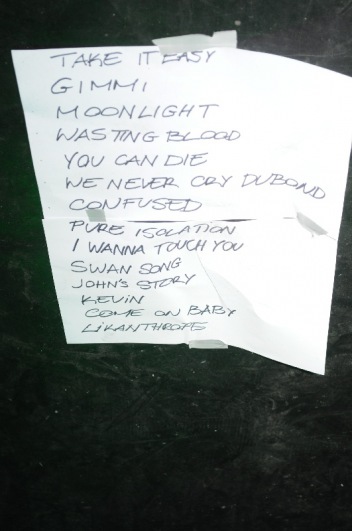 TAKE IT EASY
GIMMI
MOONLIGHT
WASTING BLOOD
YOU CAN DIE
WE NEVER CRY DUBOND
CONFUSED
PURE ISOLATION
I WANNA TOUCH YOU
SWAN SONG
JOHN'S STORY
KEVIN
COME ON BABY
LIKANTHROPE